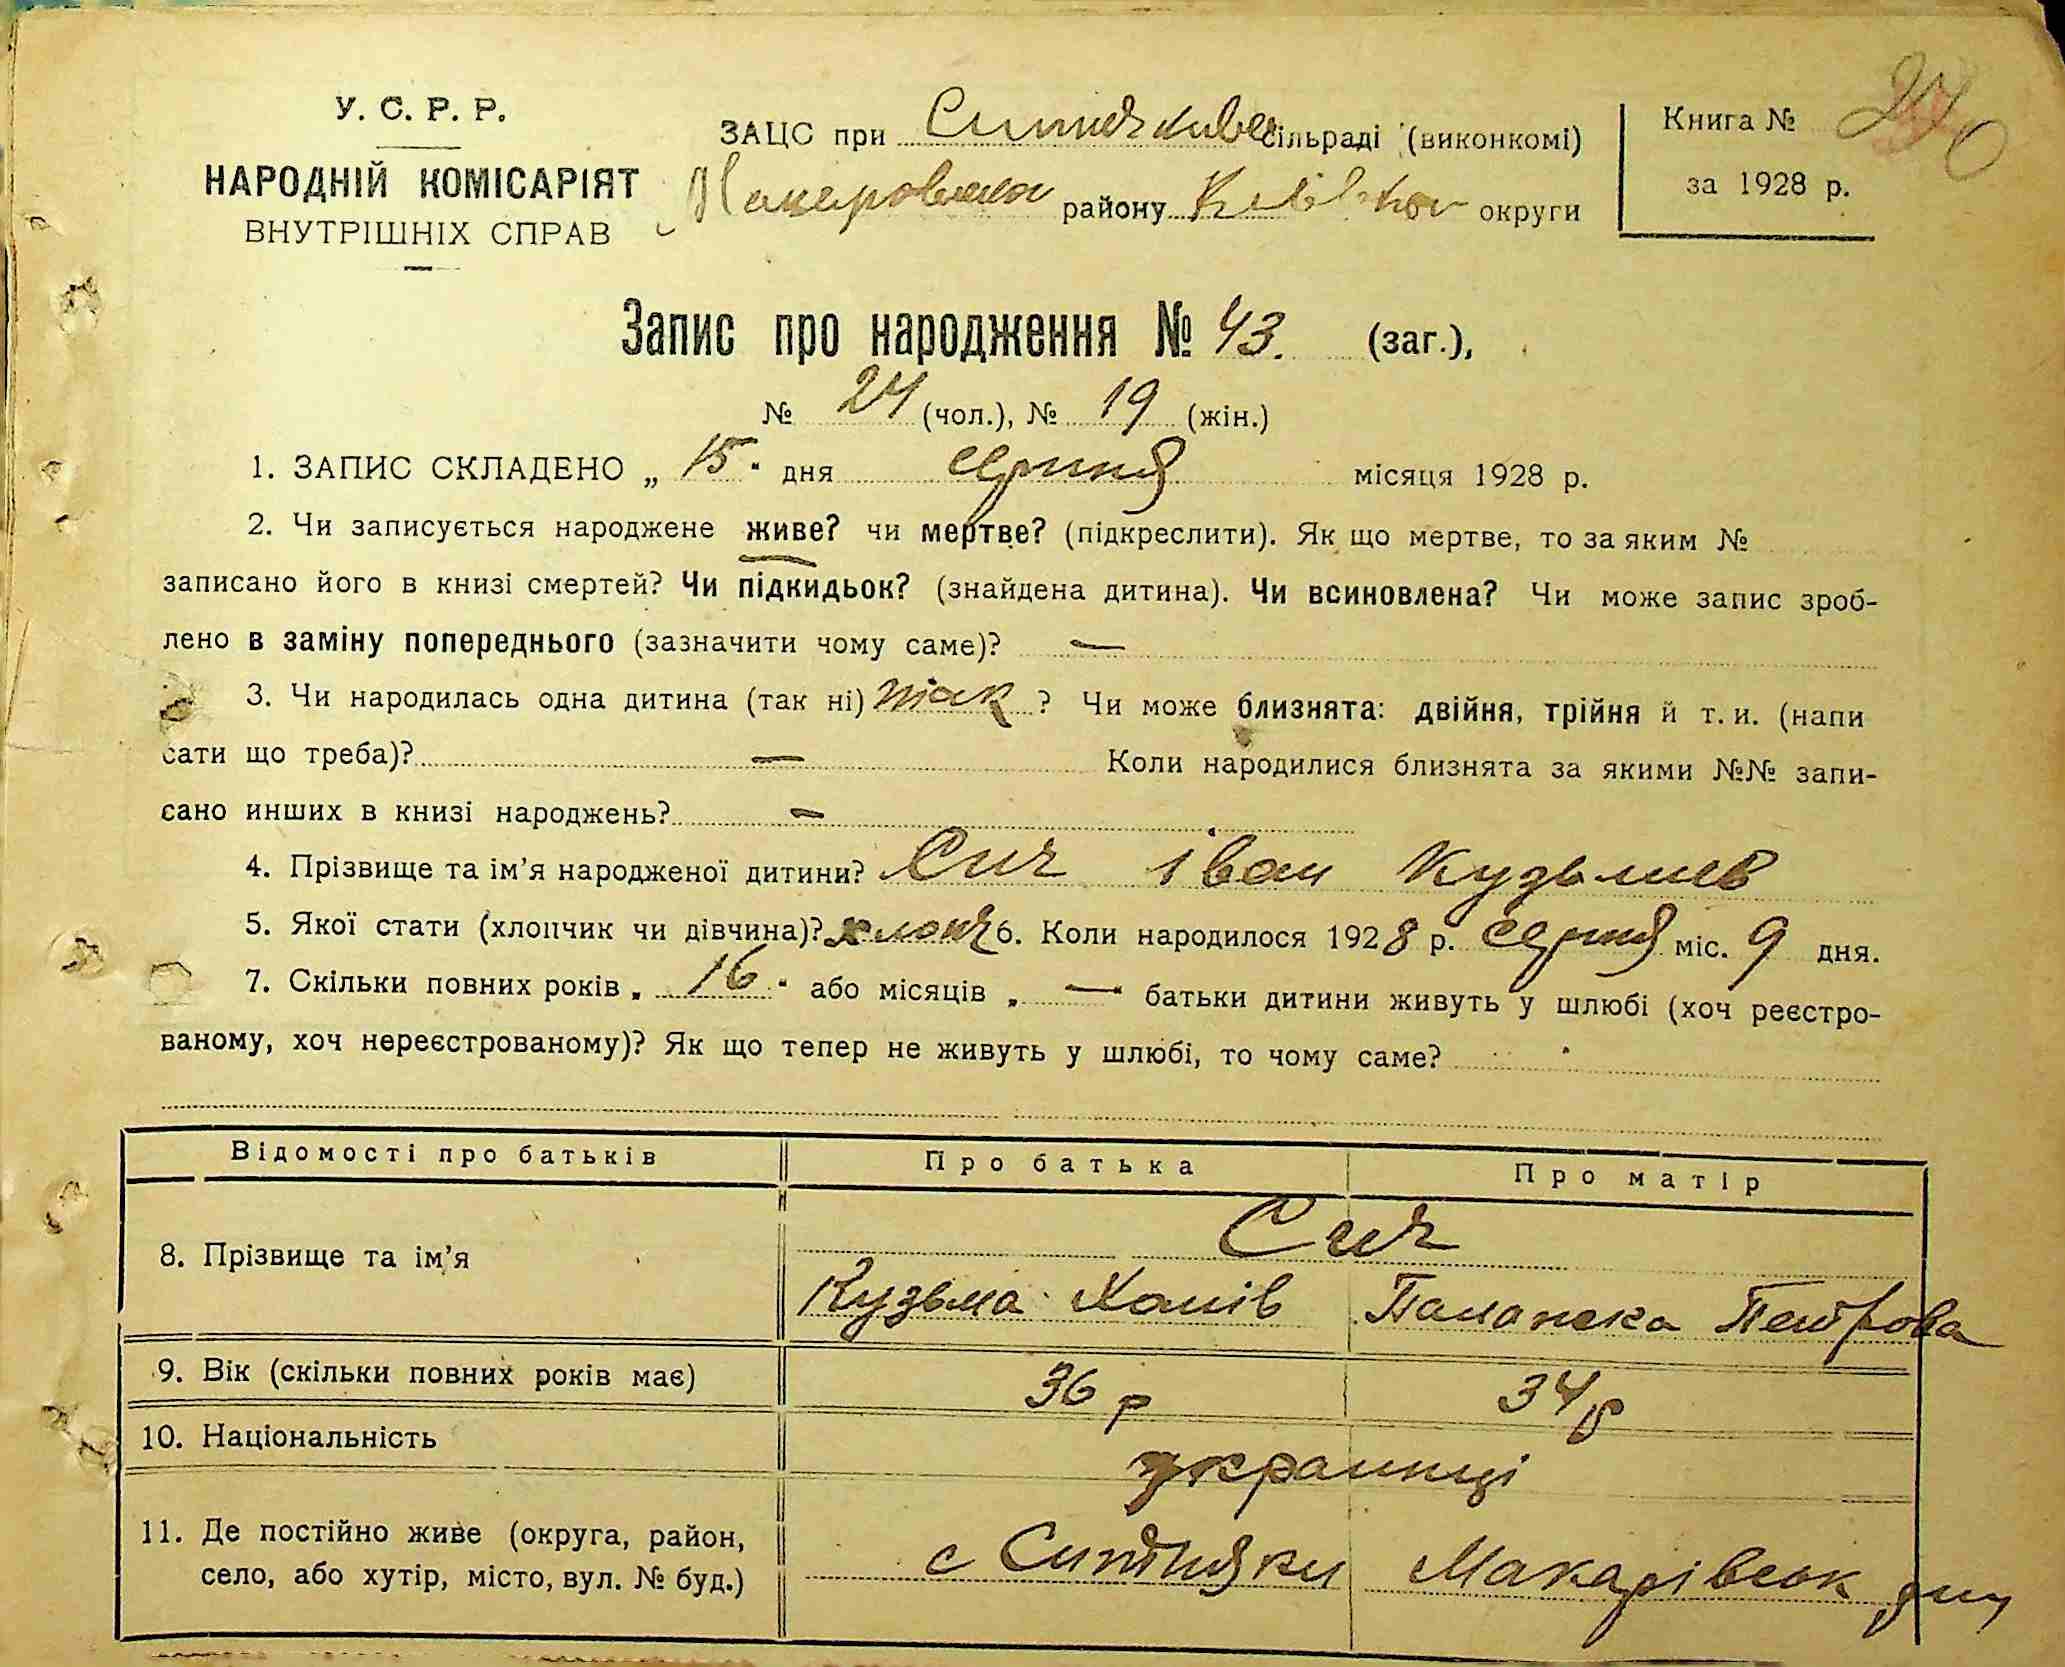 У. С. Р. Р.
НАРОДНІЙ КОМІСАРІЯТ
ВНУТРІШНІХ СПРАВ
ЗАЦС при Ситняківс сільраді (виконкомі)
району округи
Книга №
за 1928 р.
Запис про народження № 43. (заг.),
№ 24 (чол.), № 19 (жін.)
1. ЗАПИС СКЛАДЕНО „ 15 " дня серпня місяця 1928 р.
2. Чи записується народжене живе? чи мертве? (підкреслити). Як що мертве, то за яким №
записано його в книзі смертей? Чи підкидьок? (знайдена дитина). Чи всиновлена? Чи може запис зроб-
лено в заміну попереднього (зазначити чому саме)? —
3. Чи народилась одна дитина (так ні) так ? Чи може близнята: двійня, трійня й т. и. (напи
сати що треба)? — Коли народилися близнята за якими №№ запи-
сано инших в книзі народжень? —
4. Прізвище та ім'я народженої дитини? Сич Іван Кузьмив
5. Якої стати (хлопчик чи дівчина)? хлопч 6. Коли народилося 1928 р. серпня міс. 9 дня.
7. Скільки повних років „ 16 " або місяців „ — " батьки дитини живуть у шлюбі (хоч реєстро-
ваному, хоч нереєстрованому)? Як що тепер не живуть у шлюбі, то чому саме?
Відомості про батьків Про батька Про матір
8. Прізвище та ім'я Сич
Кузьма Хомів Палажка Петрова
9. Вік (скільки повних років має) 36 р 34 р
10. Національність українці
11. Де постійно живе (округа, район,
село, або хутір, місто, вул. № буд.) с Ситняки Макарівськ